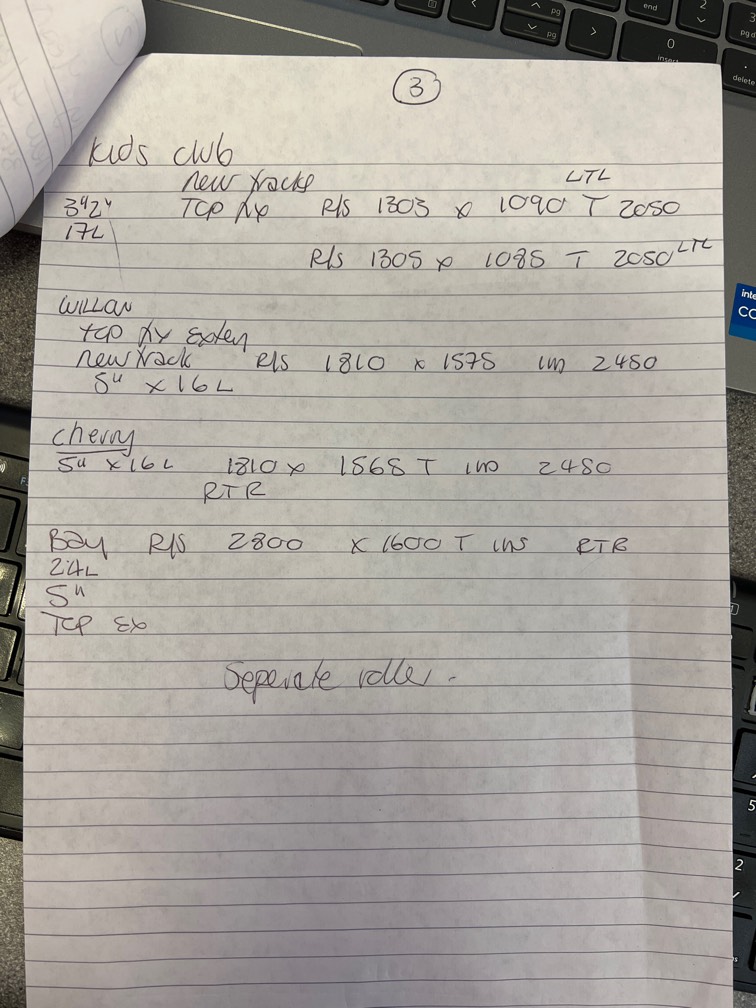 3
Kids club
new tracks LTL
3"2" TCP fix R/S 1303 x 1090 T 2050
17L
R/S 1305 x 1085 T 2050 LTL
WILLOW
TCP fix Exten
new track R/S 1810 x 1575 ins 2450
5" x 16L
Cherry
5" x 16L 1810 x 1565 T ins 2450
RTR
Bay R/S 2800 x 1600 T ins RTR
24L
5"
TCP Ex
Seperate roller.